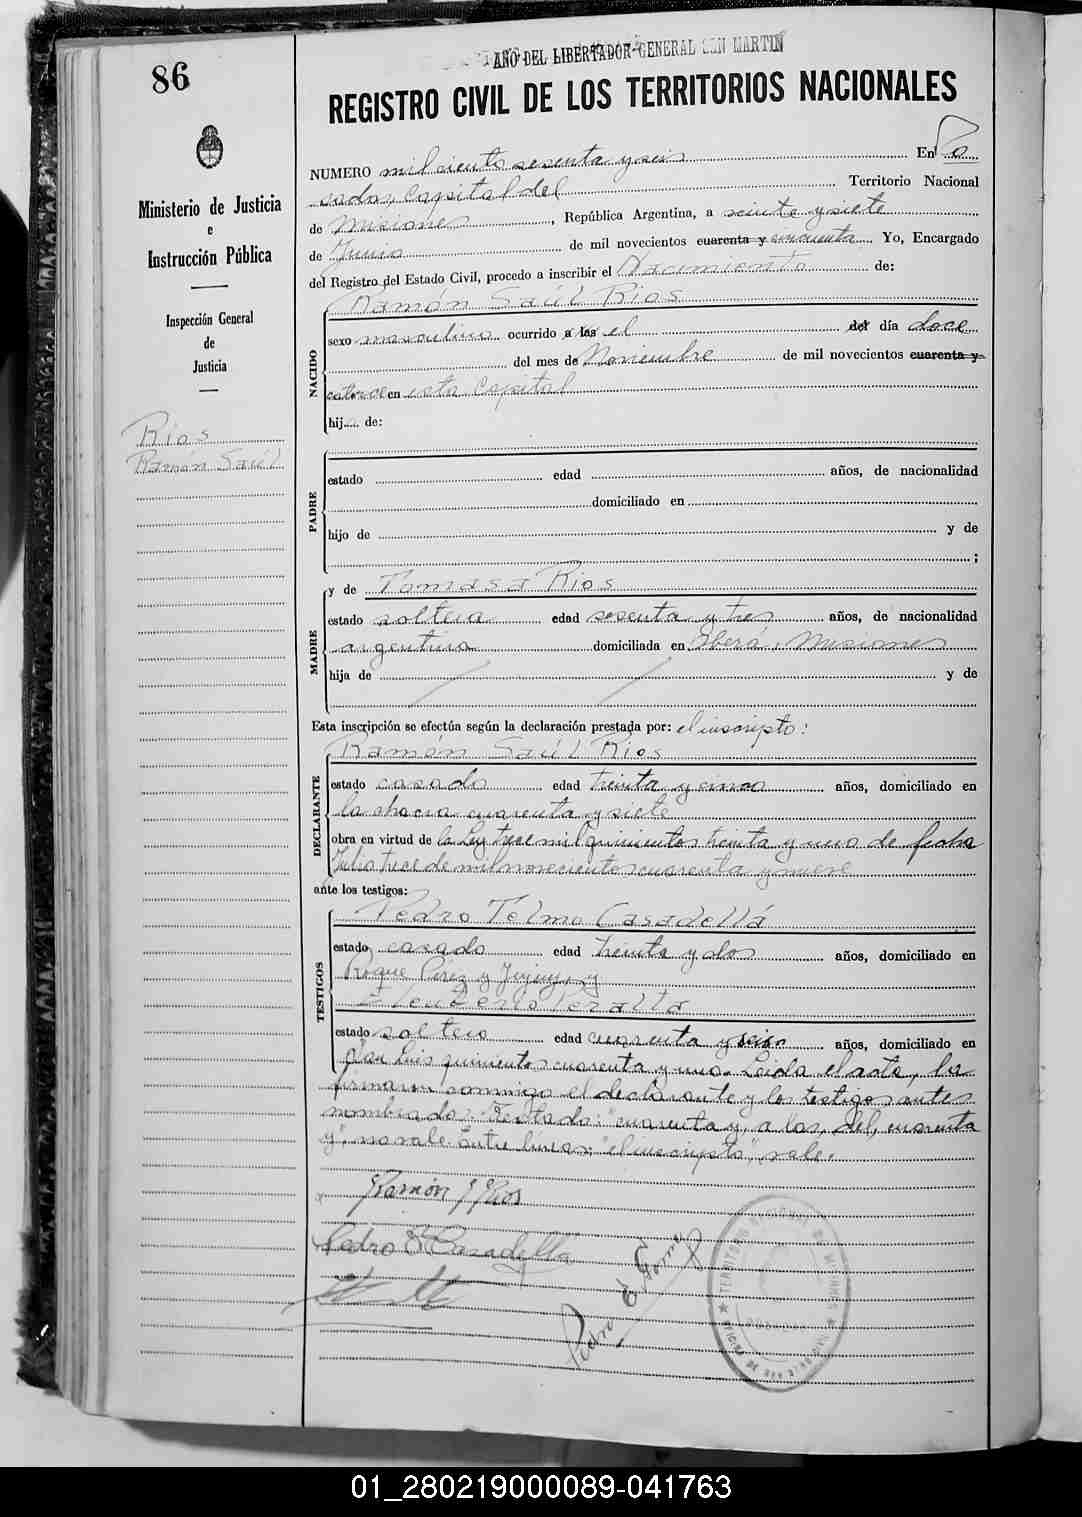 86
AÑO DEL LIBERTADOR GENERAL SAN MARTIN
REGISTRO CIVIL DE LOS TERRITORIOS NACIONALES
Ministerio de Justicia
e
Instrucción Pública
Inspección General
de
Justicia
Rios
Ramón Saúl
NUMERO mil ciento sesenta y seis En Po
sadas, Capital del Territorio Nacional
de Misiones, República Argentina, a veinte y siete
de Junio de mil novecientos cuarenta y cincuenta Yo, Encargado
del Registro del Estado Civil, procedo a inscribir el Nacimiento de:
Ramón Saúl Rios
NACIDO
sexo masculino ocurrido a las el del día doce
del mes de Noviembre de mil novecientos cuarenta y
catorce en esta Capital
hij.... de:
PADRE
estado edad años, de nacionalidad
domiciliado en
hijo de y de
;
MADRE
y de Tomasa Rios
estado soltera edad sesenta y tres años, de nacionalidad
argentina domiciliada en Oberá, Misiones
hija de y de
Esta inscripción se efectúa según la declaración prestada por: el inscripto:
DECLARANTE
Ramón Saúl Rios
estado casado edad treinta y cinco años, domiciliado en
la chacra cuarenta y siete
obra en virtud de la Ley trece mil quinientos treinta y uno de fecha
Julio trece de mil novecientos cuarenta y nueve
ante los testigos:
TESTIGOS
Pedro Telmo Casadellá
estado casado edad treinta y dos años, domiciliado en
Roque Pérez y Jujuy, y
Eleuterio Peralta
estado soltero edad cuarenta y seis años, domiciliado en
San Luis quinientos cuarenta y uno. Leida el acta, la
firmaron conmigo el declarante y los testigos antes
nombrados. Testado: "cuarenta y, a las, del, cuarenta
y", no vale. Entre lineas: "el inscripto", vale.
Ramón S Rios
Pedro T Casadellá
TERRITORIO NACIONAL DE MISIONES
OFICINA DE REGISTRO CIVIL
POSADAS
01_280219000089-041763